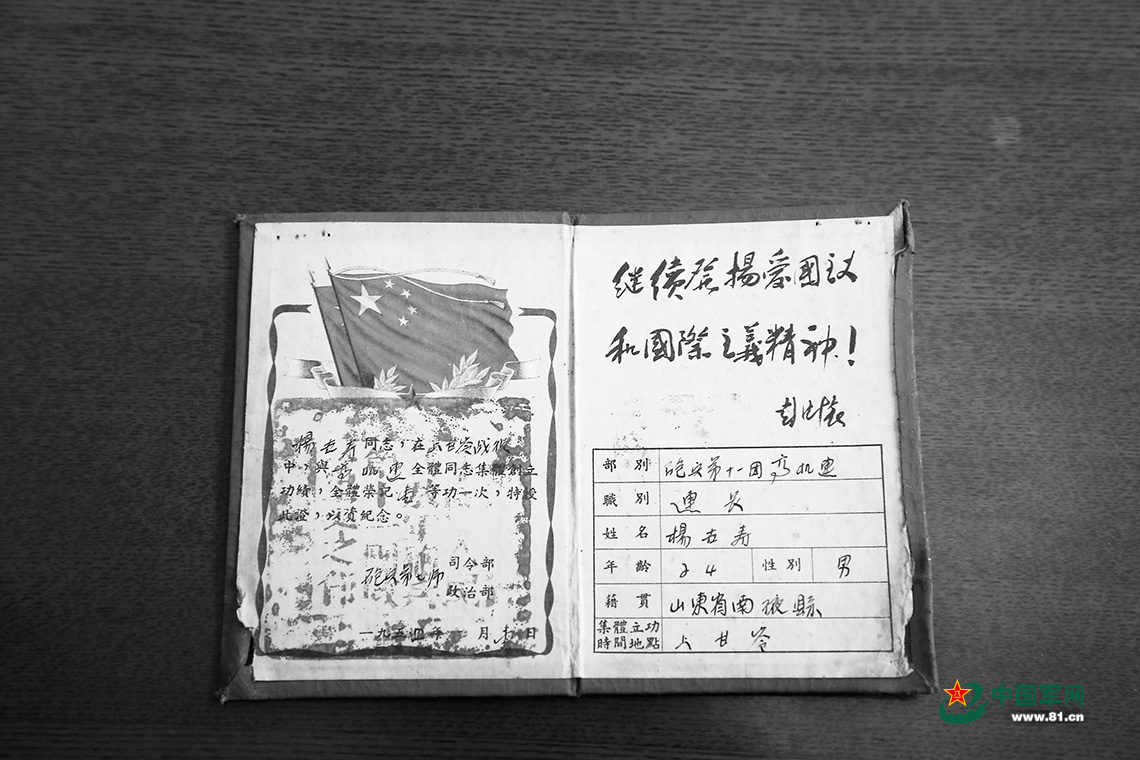 楊世寿同志，在上甘岭战役
中，與高机連全體同志集體創立
功績，全體榮記 等功一次，特授
此證，以資紀念。
砲兵第七师
司令部
政治部
一九五四年一月 日
继续發揚爱國主义
和國際主義精神！
彭德怀
部別 砲兵第十一团高机連
職別 連长
姓名 楊世寿
年齡 24 性別 男
籍貫 山東省南掖縣
集體立功
時間地點 上甘岺
中国军网
www.81.cn